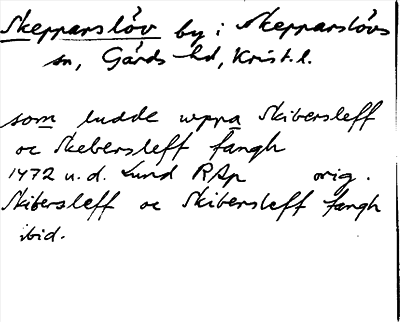 Skepparslöv by i Skepparslövs
sn, Gärds hd, Krist. l.
som ludde uppa Skibersleff
oc Skebersleff fangh
1472 u.d. Lund RAp orig.
Skibersleff oc Skibersleff fangh
ibid.